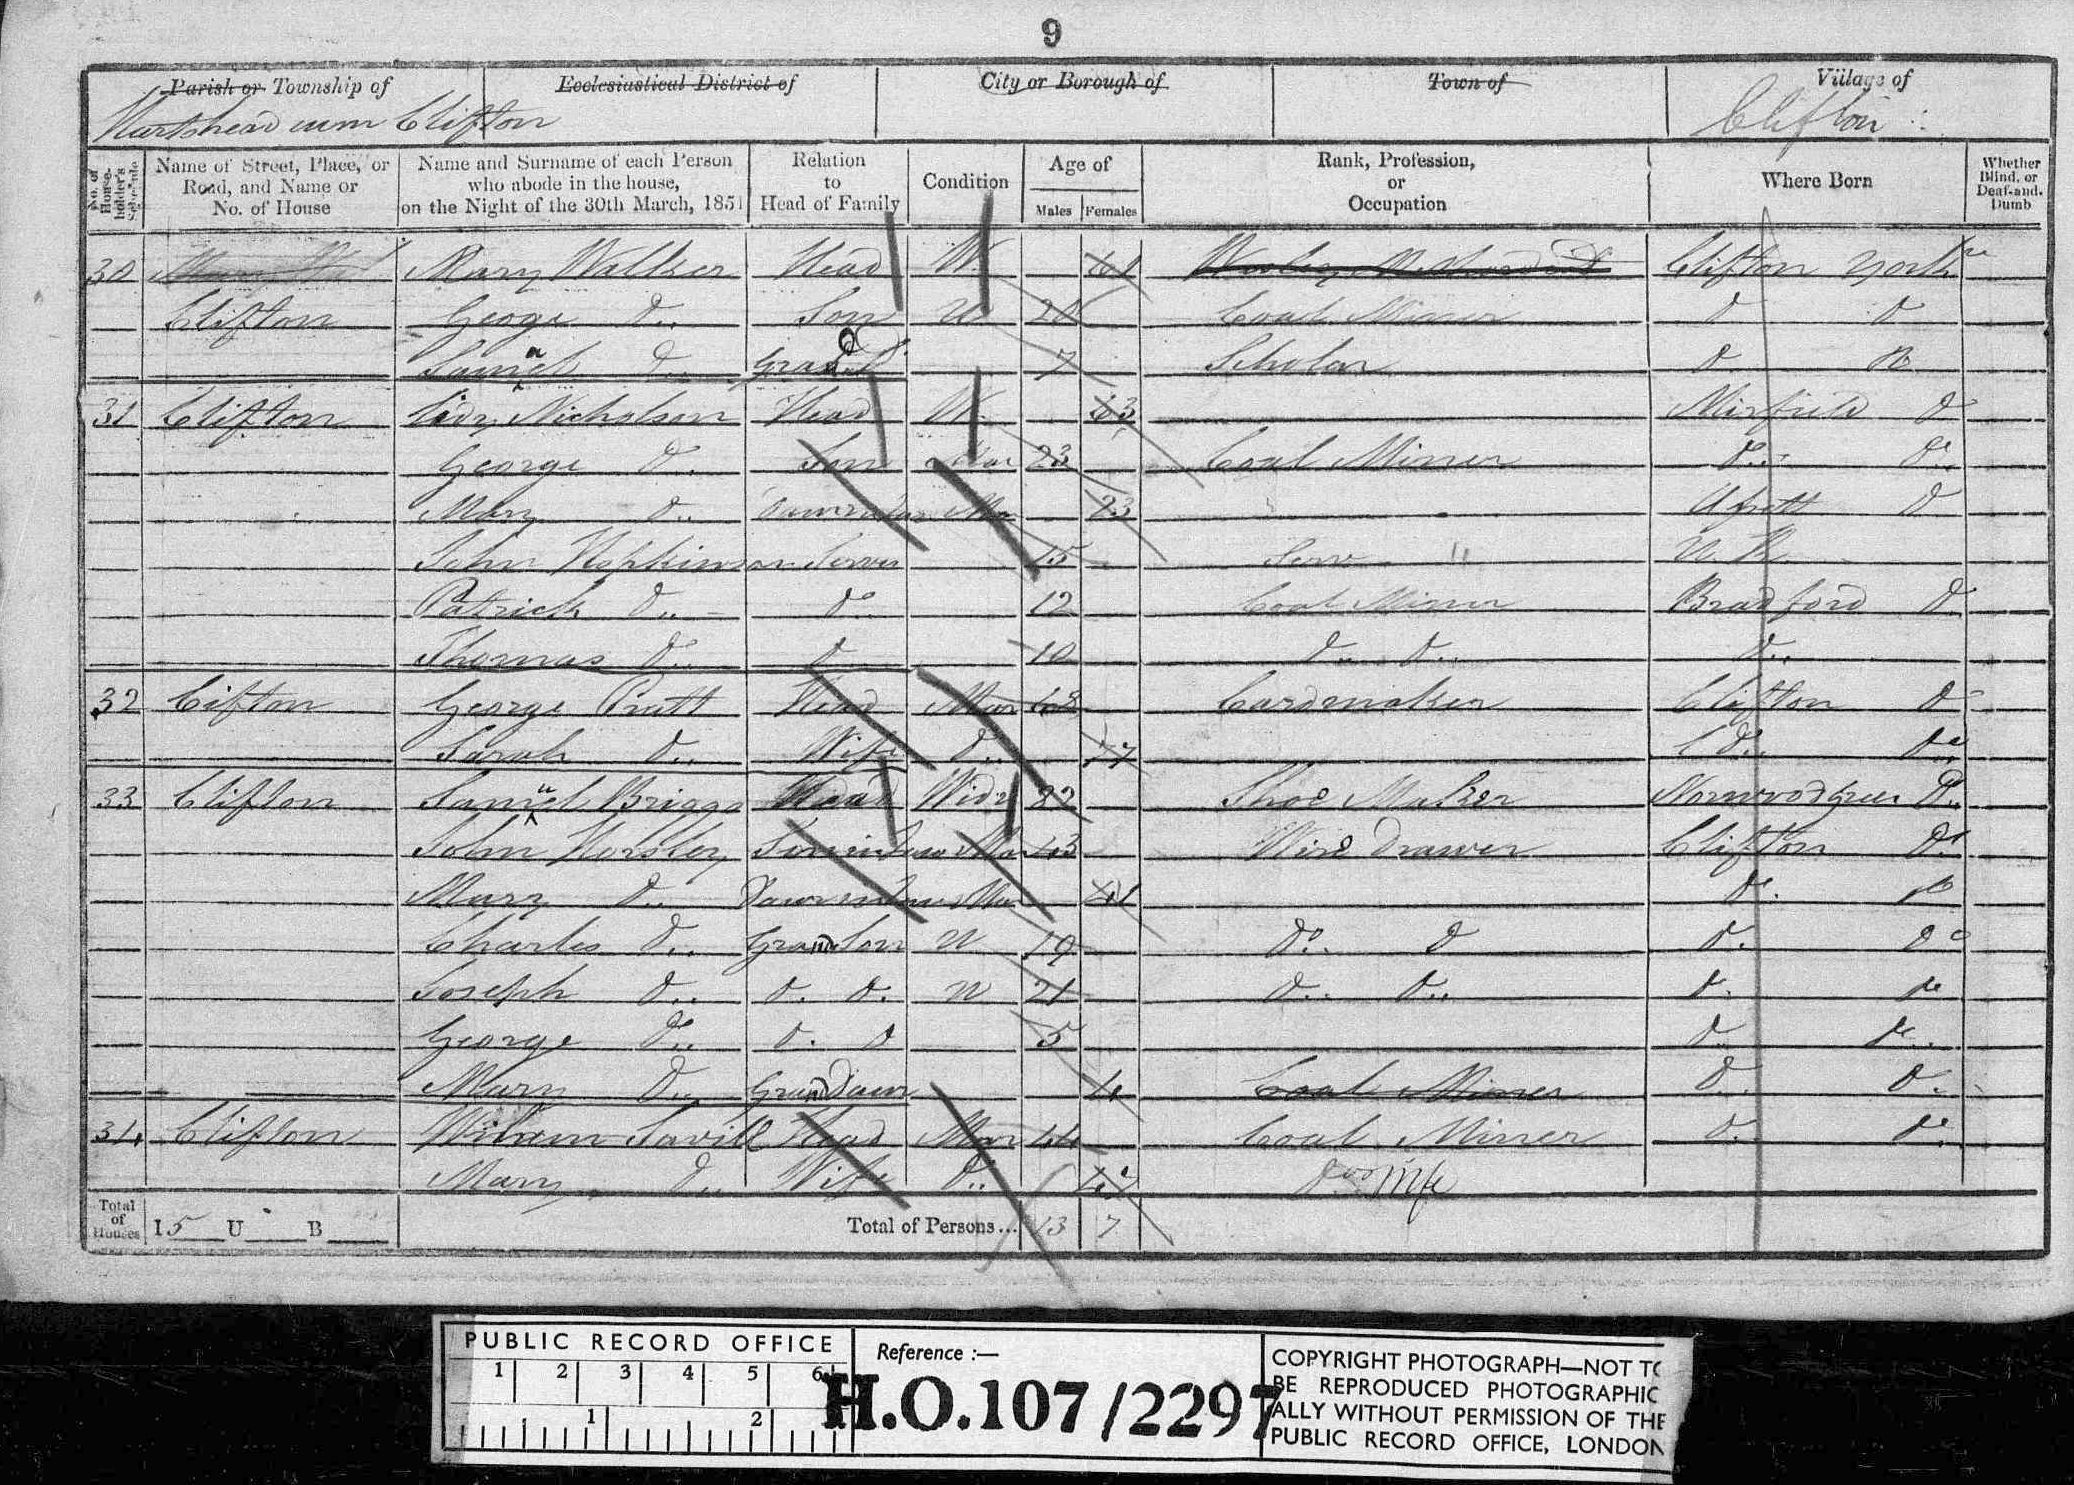 9
Parish or Township of Ecclesiastical District of City or Borough of Town of Village of
Hartshead cum Clifton Clifton
No. of House-holder's Schedule Name of Street, Place, or Road, and Name or No. of House Name and Surname of each Person who abode in the house, on the Night of the 30th March, 1851 Relation to Head of Family Condition Age of Males Females Rank, Profession, or Occupation Where Born Whether Blind, or Deaf-and-Dumb
30 Mary Walker Head W 61 Clifton York
Clifton Geoge D.. Son U Coal Miner D D
Samuel D.. 7 Scholar D
31 Clifton Nicholson Head W. 63 Mirfield D
George D. Son Mar 23 Coal Miner Do.. Do..
Mary D.. Mar 23 D
John Hopkinson 15
Patrick D.. Do. 12 Coal Miner Bradford D
Thomas D.. D 10 D.. D.. D..
32 Cifton George Pratt Head Mar Cardmaker Clifton D
Sarah D.. Wife D.. Do.. Do
33 Clifton Samuel Briggs Head Widr 82 Shoe Maker Norwoodgreen D..
John Horsley Soninlaw Mar 43 Wire drawer Clifton Do
Mary D.. Mar 41 Do. Do
Charles D.. GrandSon U 19 Do.. D D. Do
Joseph D.. D. D. U 21 D.. D.. D. Do
George D.. D. D 5 D. Do..
Mary D.. GrandDaur 4 Coal Miner D.. D.
34 Clifton Savill Head Mar 44 Coal Miner D. Do.
Mary D.. Wife D.. Do Wife
Total of Houses I 5 U B Total of Persons... 13 7
PUBLIC RECORD OFFICE
1 2 3 4 5 6
1 2
Reference :—
H.O.107/2297
COPYRIGHT PHOTOGRAPH—NOT TO
BE REPRODUCED PHOTOGRAPHIC
ALLY WITHOUT PERMISSION OF THE
PUBLIC RECORD OFFICE, LONDON